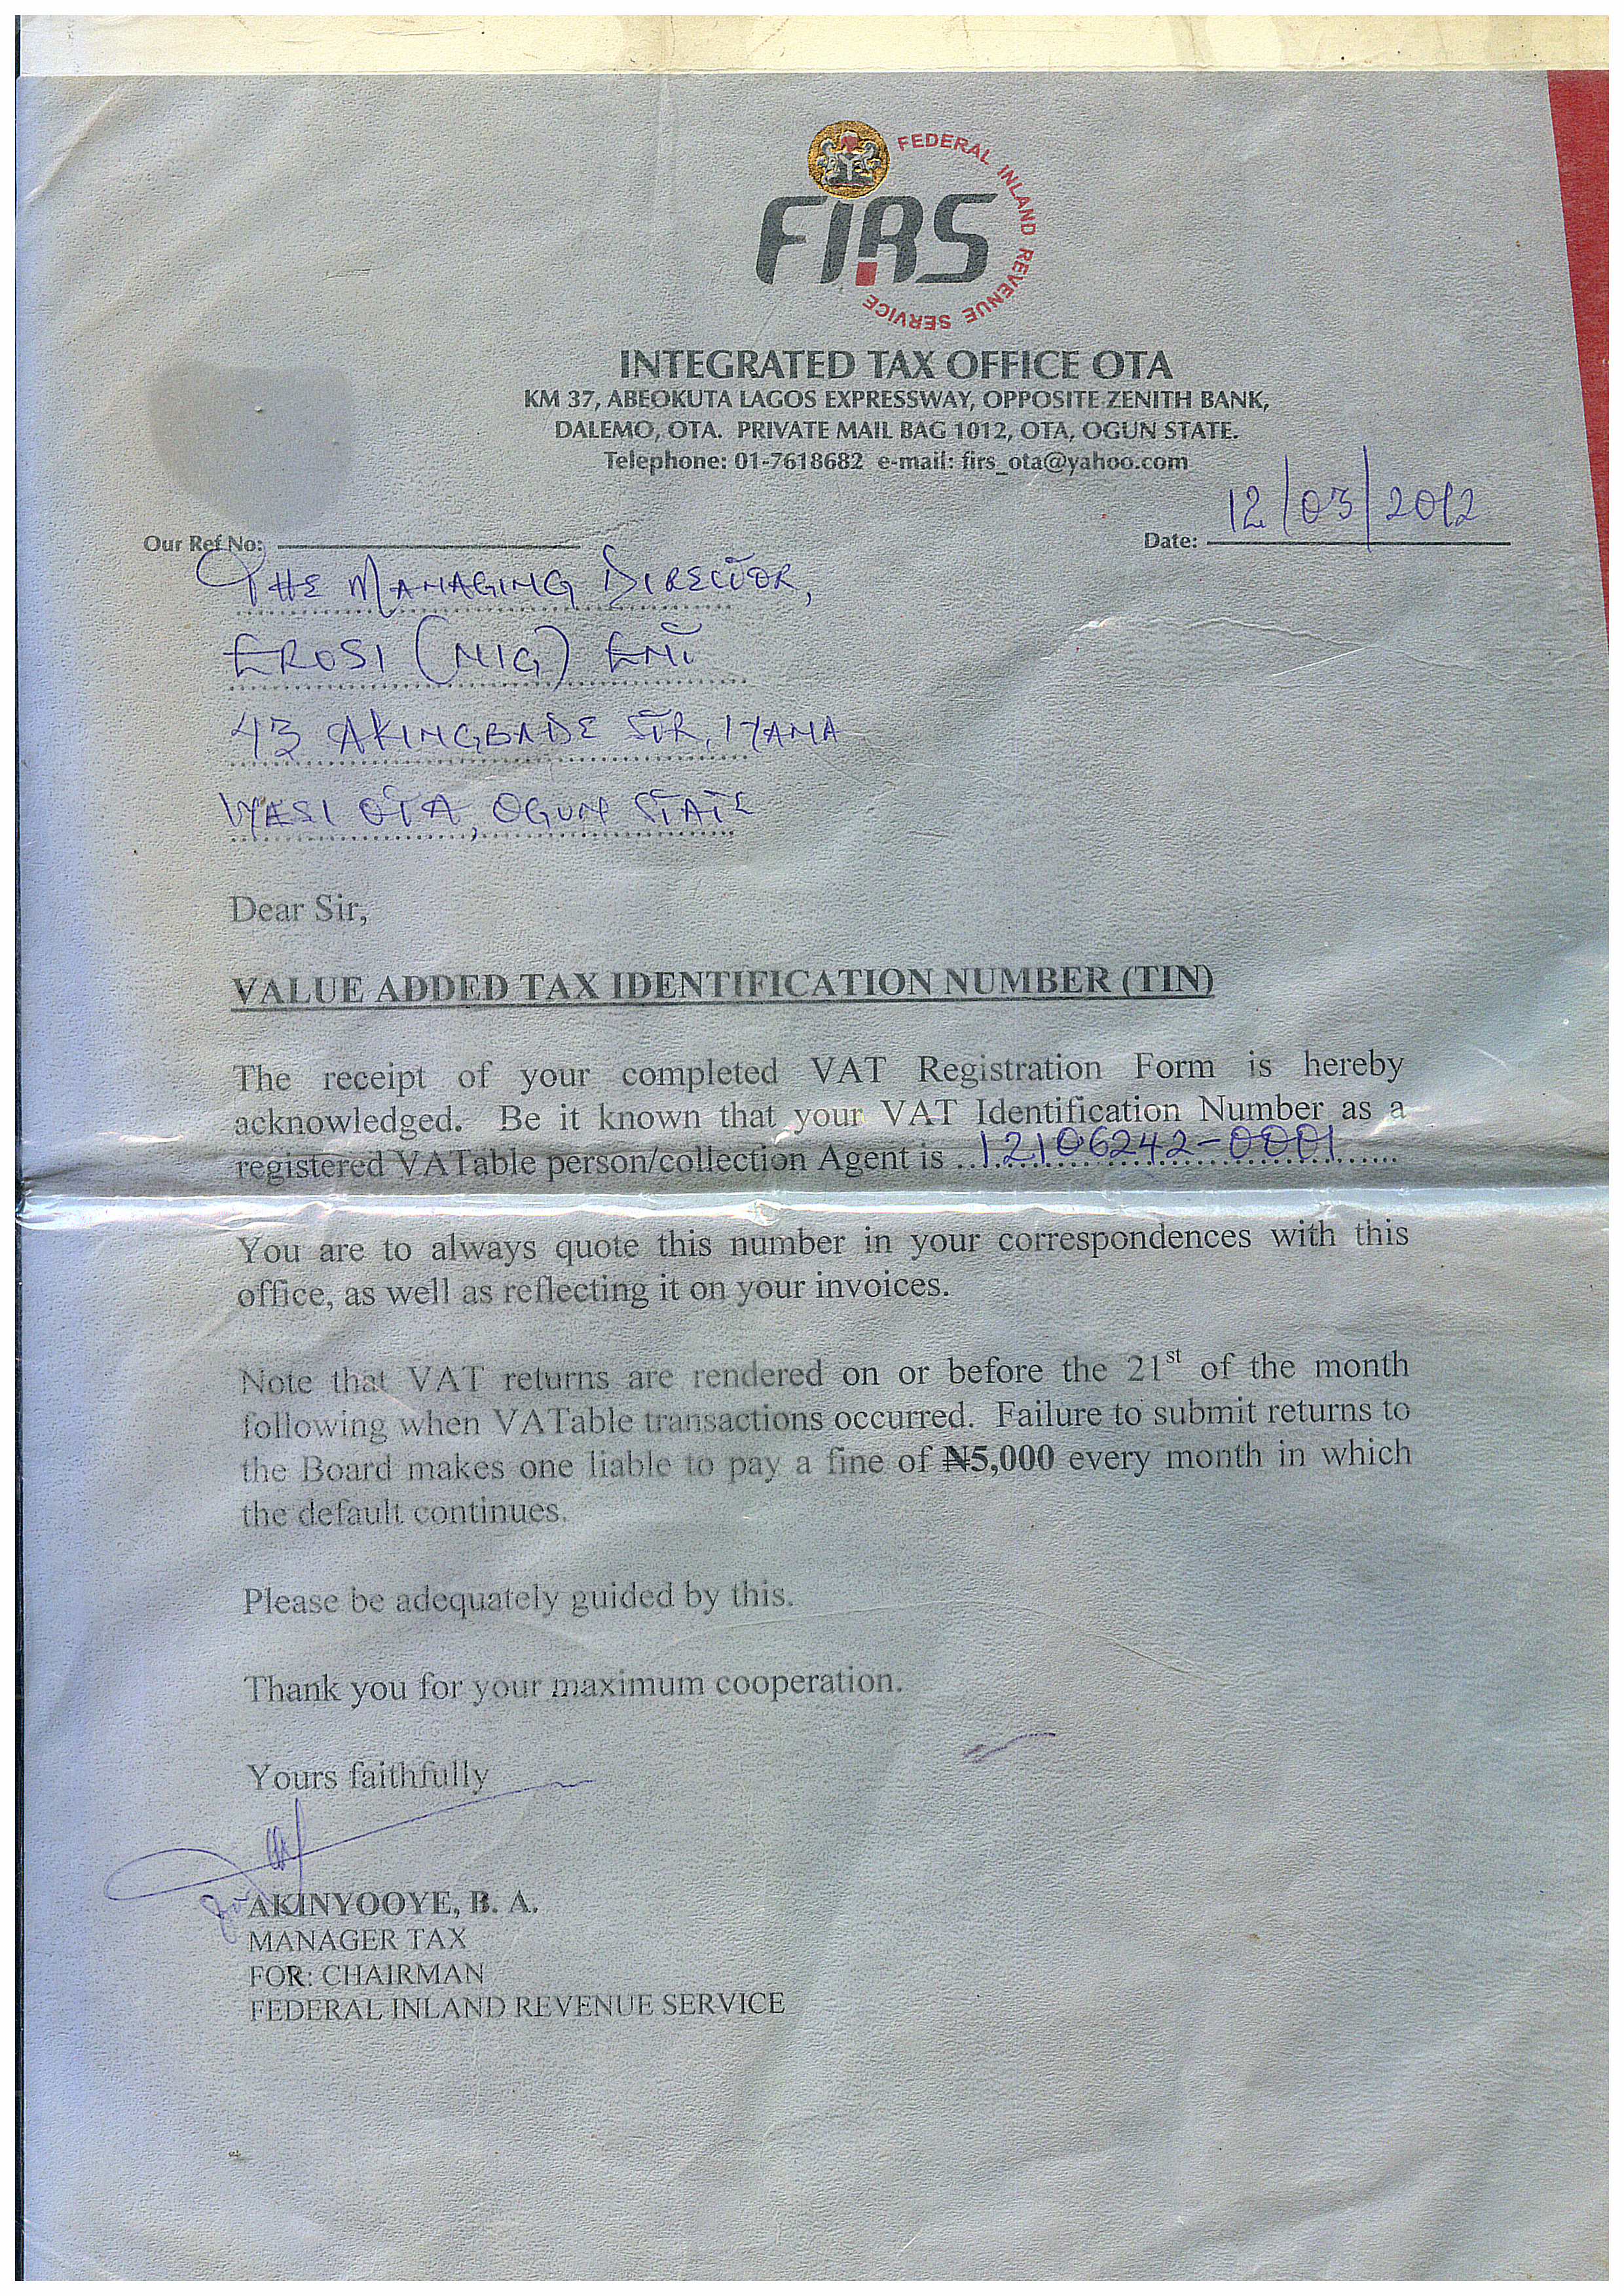 FEDERAL INLAND REVENUE SERVICE
FIRS
INTEGRATED TAX OFFICE OTA
KM 37, ABEOKUTA LAGOS EXPRESSWAY, OPPOSITE ZENITH BANK,
DALEMO, OTA. PRIVATE MAIL BAG 1012, OTA, OGUN STATE.
Telephone: 01-7618682 e-mail: firs_ota@yahoo.com
Our Ref No: Date: 12/03/2012
THE MANAGING DIRECTOR,
EROSI (NIG) ENT
43 AKINGBADE STR, IYANA
IYESI OTA, OGUN STATE
Dear Sir,
VALUE ADDED TAX IDENTIFICATION NUMBER (TIN)
The receipt of your completed VAT Registration Form is hereby
acknowledged. Be it known that your VAT Identification Number as a
registered VATable person/collection Agent is ...12106242-0001......
You are to always quote this number in your correspondences with this
office, as well as reflecting it on your invoices.
Note that VAT returns are rendered on or before the 21st of the month
following when VATable transactions occurred. Failure to submit returns to
the Board makes one liable to pay a fine of ₦5,000 every month in which
the default continues.
Please be adequately guided by this.
Thank you for your maximum cooperation.
Yours faithfully
AKINYOOYE, B. A.
MANAGER TAX
FOR: CHAIRMAN
FEDERAL INLAND REVENUE SERVICE